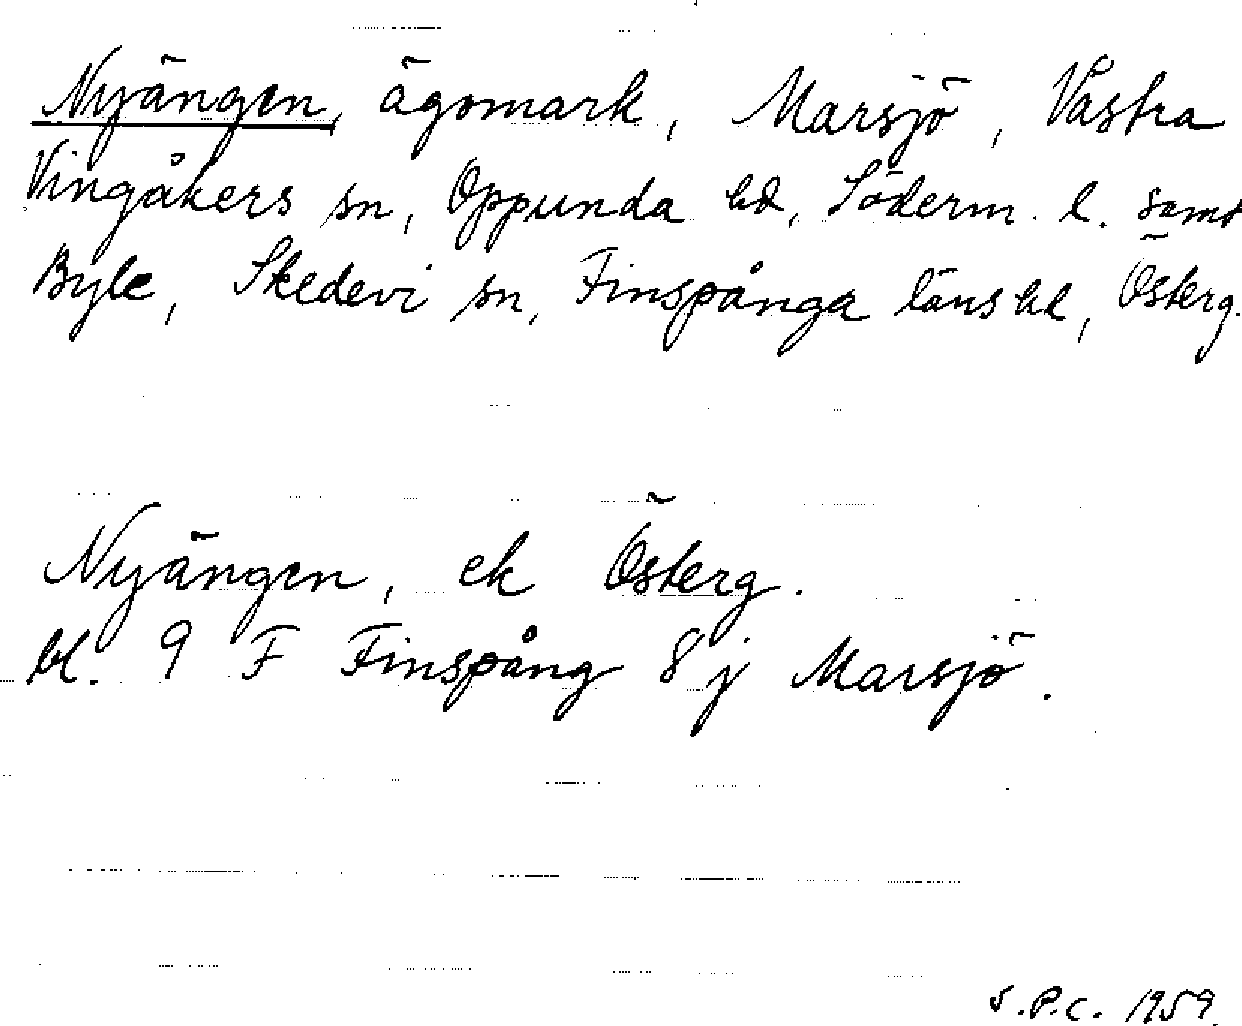 Nyängen, ägomark, Marsjö, Västra
Vingåkers sn, Oppunda hd, Söderm. l. samt
Byle, Skedevi sn, Finspånga läns hd, Österg.
Nyängen, ek Österg.
bl. 9 F Finspång 8 j Marsjö.
S.P.C. 1959.